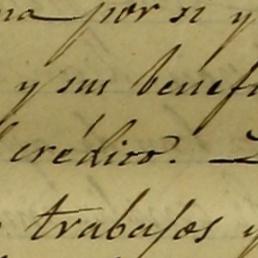 na por si y
y sus benefi
crédito.
trabajos y